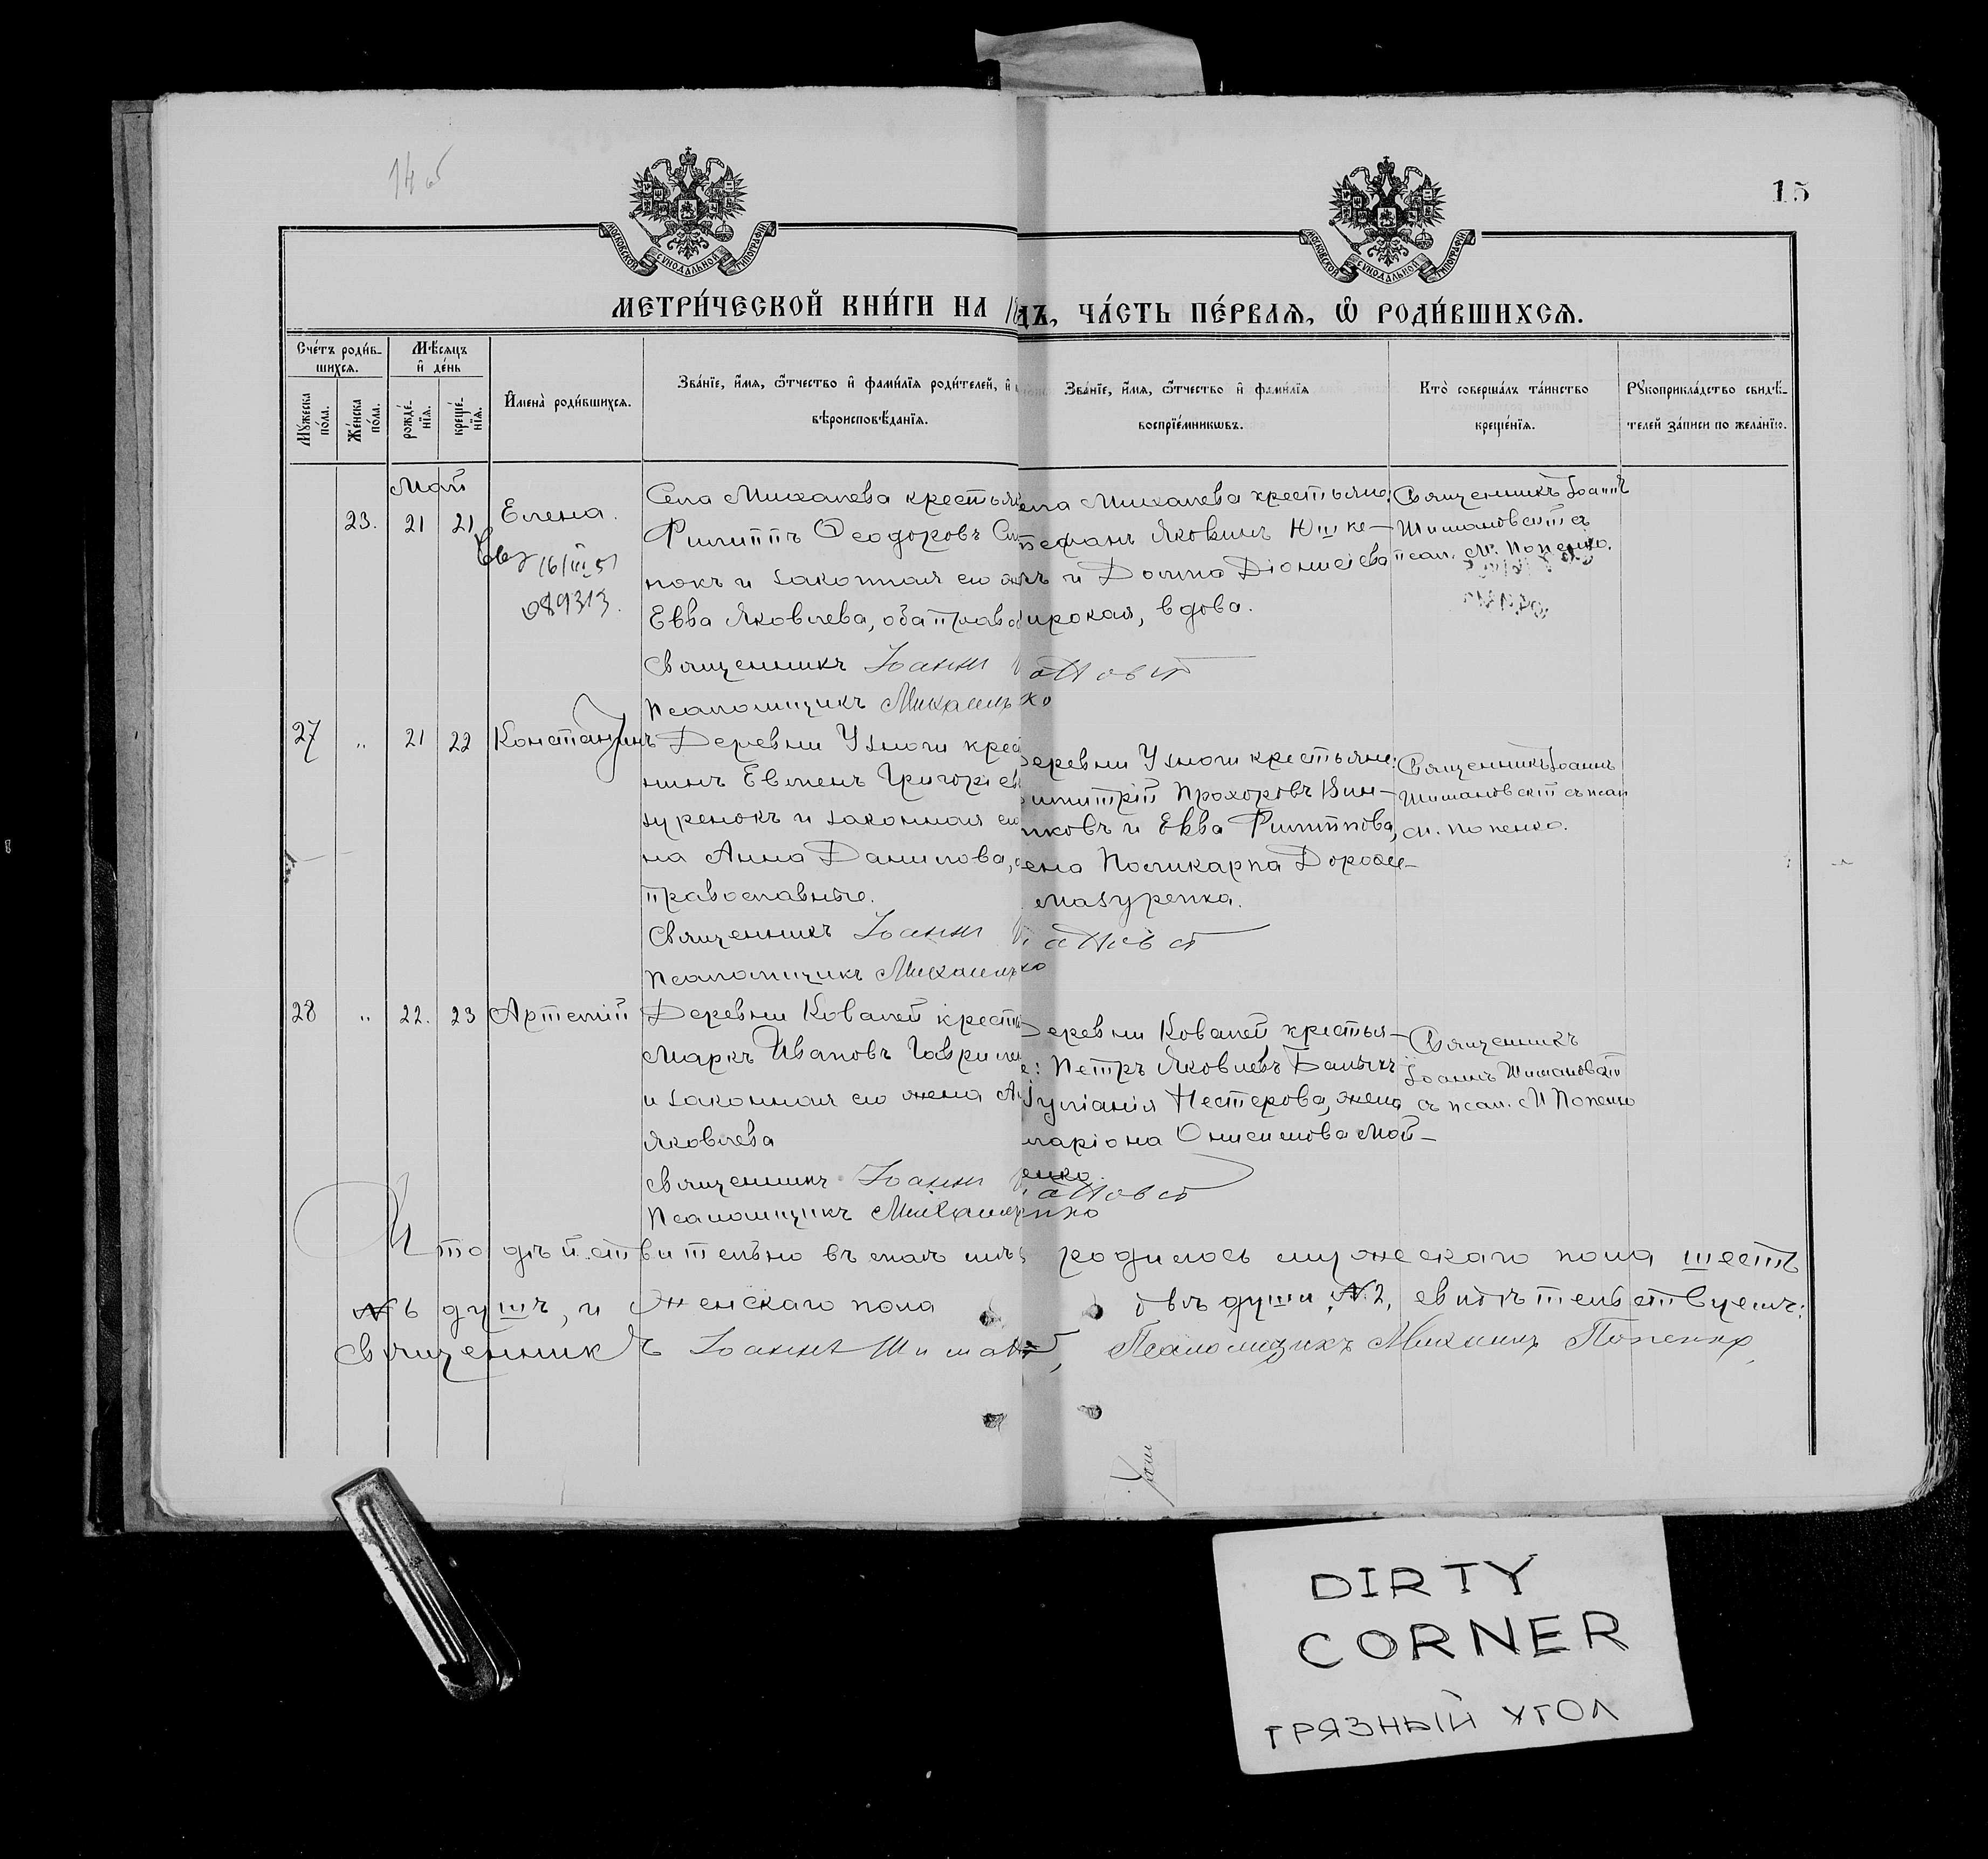 14 об
15
МОСКОВСКОЙ СУНОДАЛЬНОЙ ТИПОГРАФІИ
МОСКОВСКОЙ СУНОДАЛЬНОЙ ТИПОГРАФІИ
МЕТРИ́ЧЕСКОЙ КНИ́ГИ НА 18
ДЪ, ЧА́СТЬ ПЕ́РВАѦ, Ѽ РОДИ́ВШИХСѦ.
Сче́тъ роди́в-
шихсѧ.
Мѣ́сѧцъ
и҆ де́нь
Мꙋ́жеска
по́ла.
Же́нска
по́ла.
рожде́-
нїѧ.
креще́-
нїѧ.
И҆мена̀ роди́вшихсѧ.
Зва́нїе, и҆́мѧ, ѻ҆́тчество и҆ фами́лїѧ роди́телей, и҆
вѣроисповѣ́данїѧ.
Зва́нїе, и҆́мѧ, ѻ҆́тчество и҆ фами́лїѧ
воспрїе́мникѡвъ.
Кто̀ соверша́лъ та́инство
креще́нїѧ.
Рꙋкоприкла́дство свидѣ́-
телей за́писи по жела́нїю.
Май
23. 21 21 Елена.
16/III 51
089313.
Села Михалева крестья
Филиппъ Ѳеодоровъ
нокъ и законная его
Евва Яковлева, оба право
Священникъ Іоаннъ
Псаломщикъ Михаилъ
ела Михалева крестьяне:
тефанъ Яковлевъ Юшке-
и Домна Діонисіева
ирокая, вдова.
ановскій
ко
Священникъ Іоаннъ
Шимановскій съ
псал. М. Попенко.
27 " 21 22 Константинъ
Деревни Узлоги крес
нинъ Евменъ Григорьев
зуренокъ и законная его
на Анна Данилова,
православные.
Священникъ Іоаннъ
Псаломщикъ Михаилъ
еревни Узлоги крестьяне:
имитрій Прохоровъ Вин-
иковъ и Евва Филиппова,
ена Поликарпа Дорофе-
Мазуренка.
ановскій
ко
Священникъ Іоаннъ
Шимановскій съ псал
М. Попенко.
28 " 22. 23 Артемій
Деревни Ковалей кресть
Маркъ Ивановъ Гаврилен
и законная его жена
Яковлева
Священникъ Іоаннъ
Псаломщикъ Михаилъ
еревни Ковалей крестья-
е: Петръ Яковлевъ
Іуліанія Нестерова, жена
ларіона Онисимова Мой-
енко.
ановскій
нко
Священникъ
Іоаннъ Шимановскій
съ псал. М Попенко
Что дѣйствительно въ маѣ мѣс родилось мужескаго пола шесть
№ 6 душъ, и женскаго пола двѣ души № 2, свидѣтельствуемъ:
Священникъ Іоаннъ Шиман , Псаломщикъ Михаилъ Попенко
DIRTY
CORNER
ГРЯЗНЫЙ УГОЛ